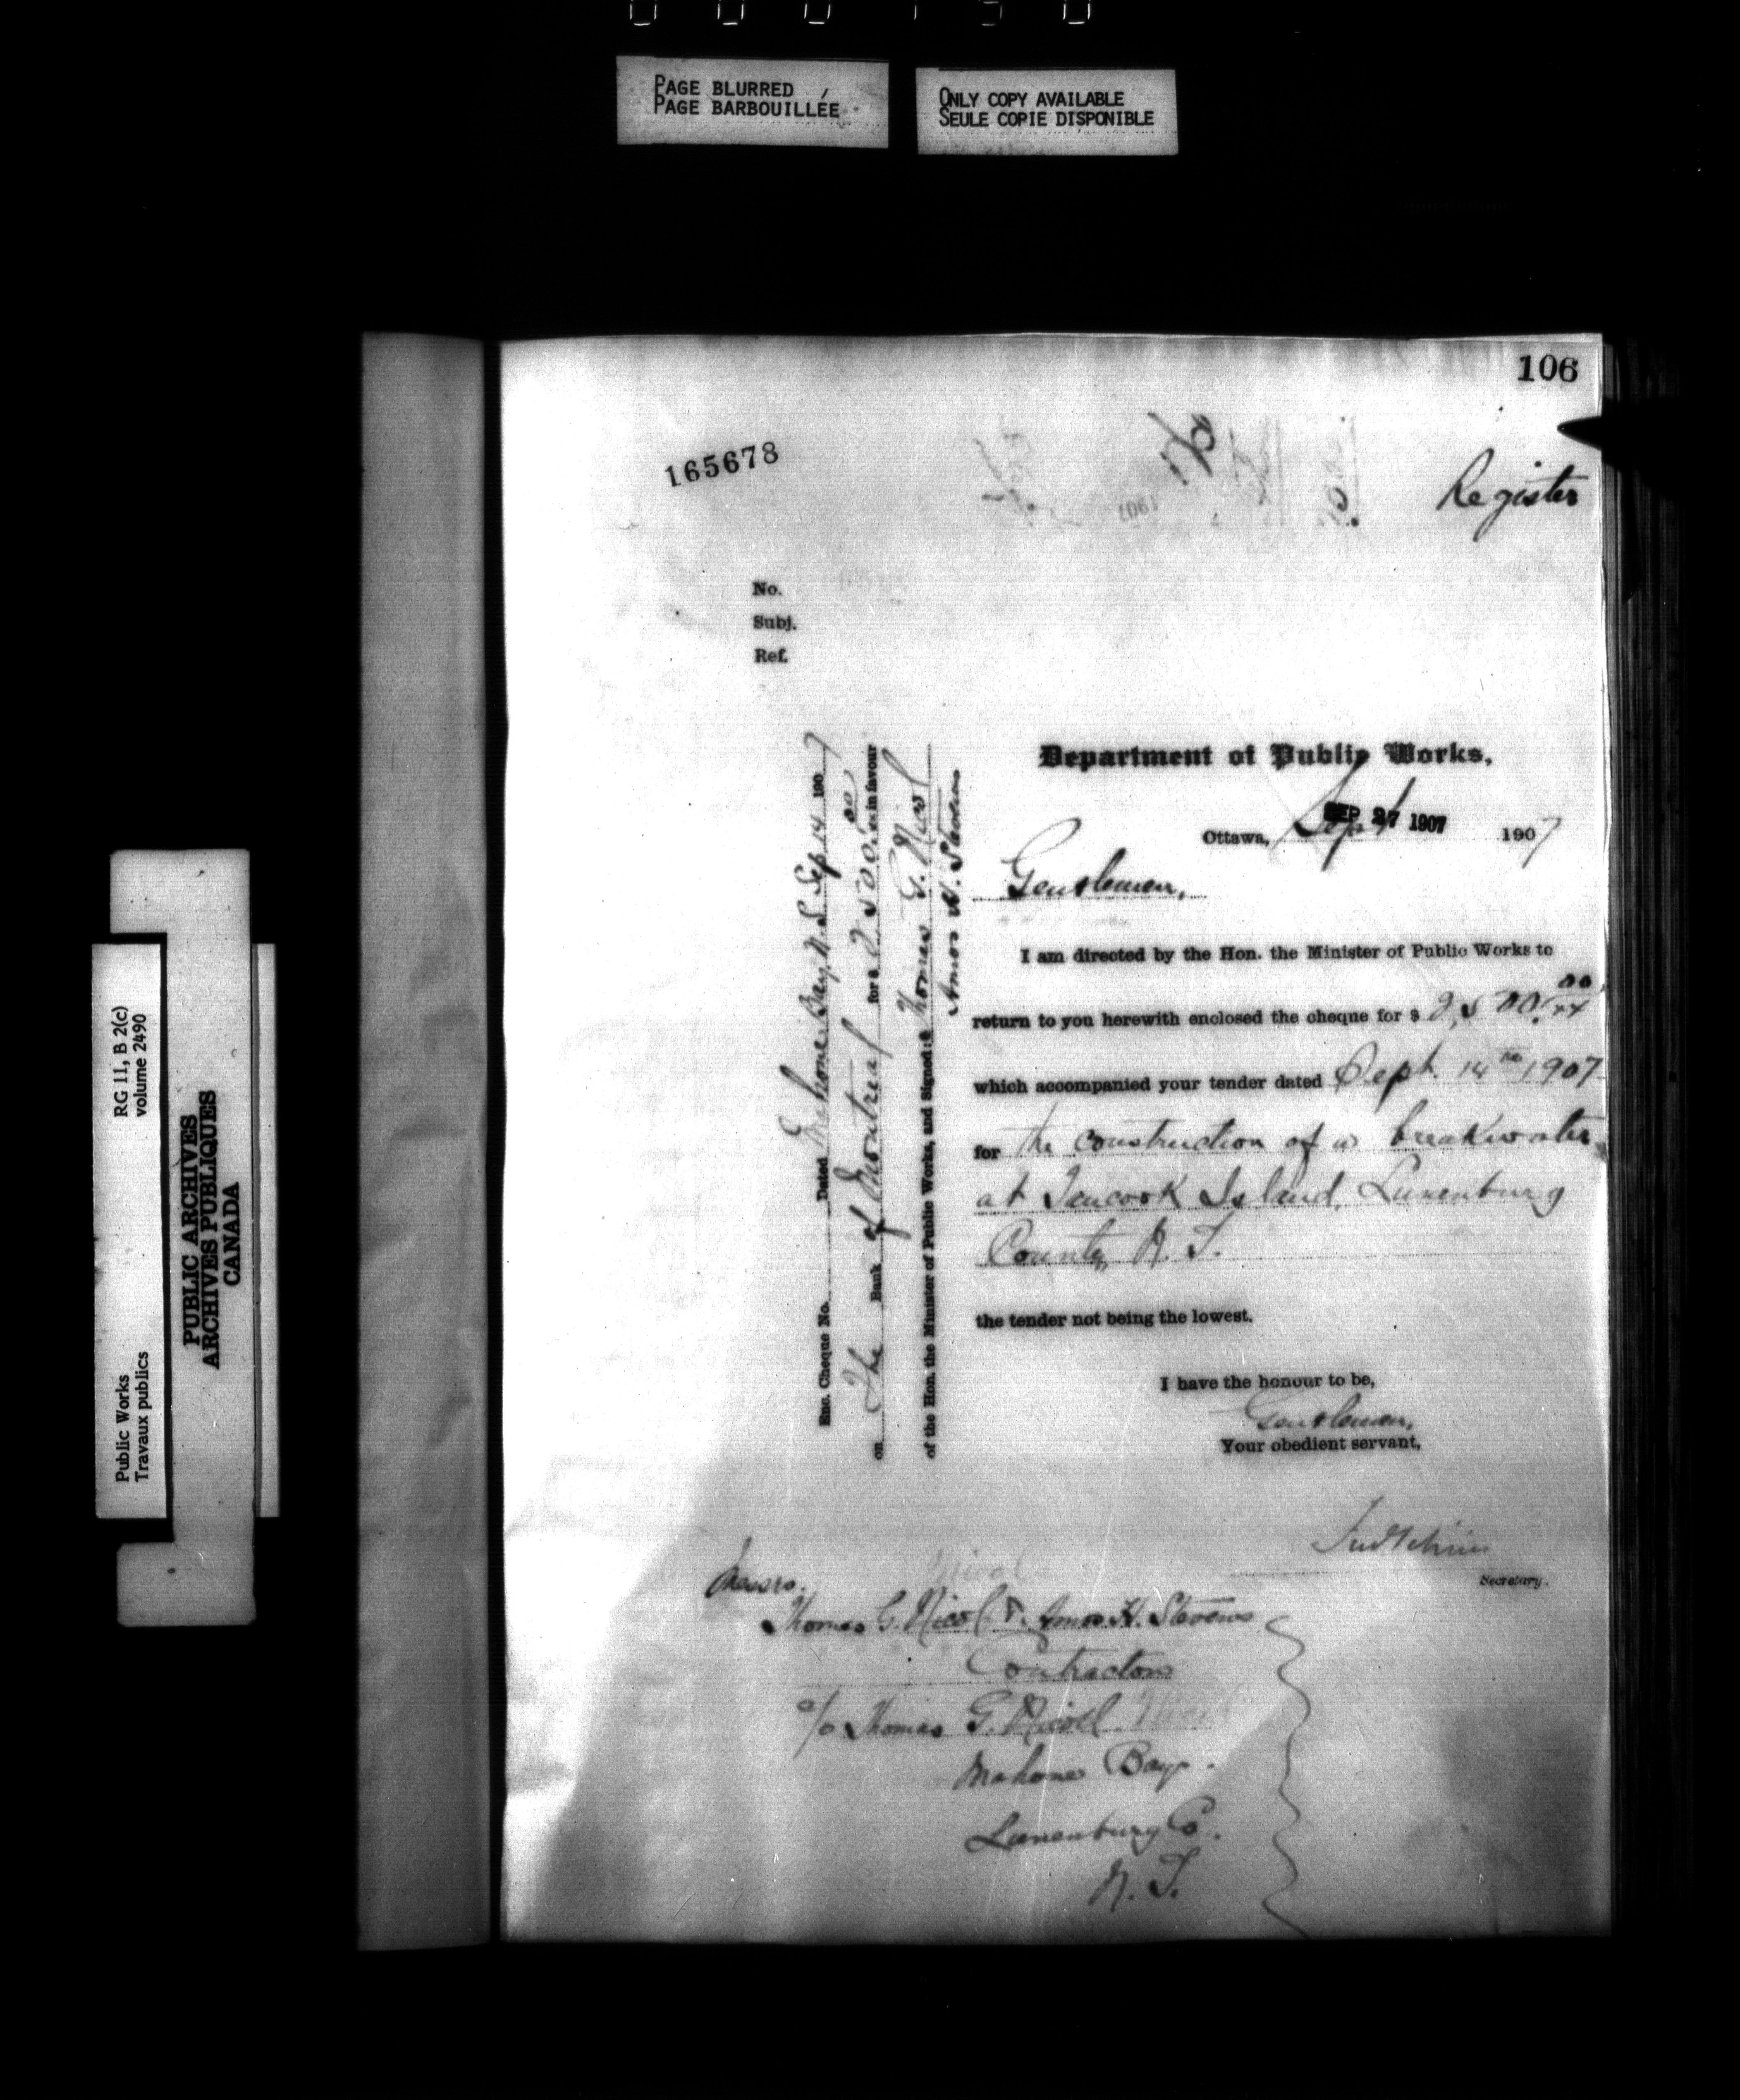 PAGE BLURRED
PAGE BARBOUILLÉE
ONLY COPY AVAILABLE
SEULE COPIE DISPONIBLE
106
165678
1907
Register
No.
Subj.
Ref.
Department of Public Works.
Ottawa, Sept SEP 27 1907 1907
Gentlemen,
I am directed by the Hon. the Minister of Public Works to
return to you herewith enclosed the cheque for $ 2,500.00/xx
which accompanied your tender dated Sept. 14th 1907
for the construction of a breakwater
at Tancook Island, Lunenburg
County, N. S.
the tender not being the lowest.
I have the honour to be,
Gentlemen,
Your obedient servant,
Secretary.
Enc. Cheque No. Dated Mahone Bay, N. S. Sep 14 1907
on The Bank of Montreal for $ 2500.00 in favour
of the Hon. the Minister of Public Works, and Signed: Thomas G. Nicol
Amos H. Stevens
Messrs.
Thomas G. Nicol & Amos H. Stevens
Contractors
c/o Thomas G. Nicol
Mahone Bay.
Lunenburg Co.
N. S.
Public Works
Travaux publics
RG 11, B 2(c)
volume 2490
PUBLIC ARCHIVES
ARCHIVES PUBLIQUES
CANADA